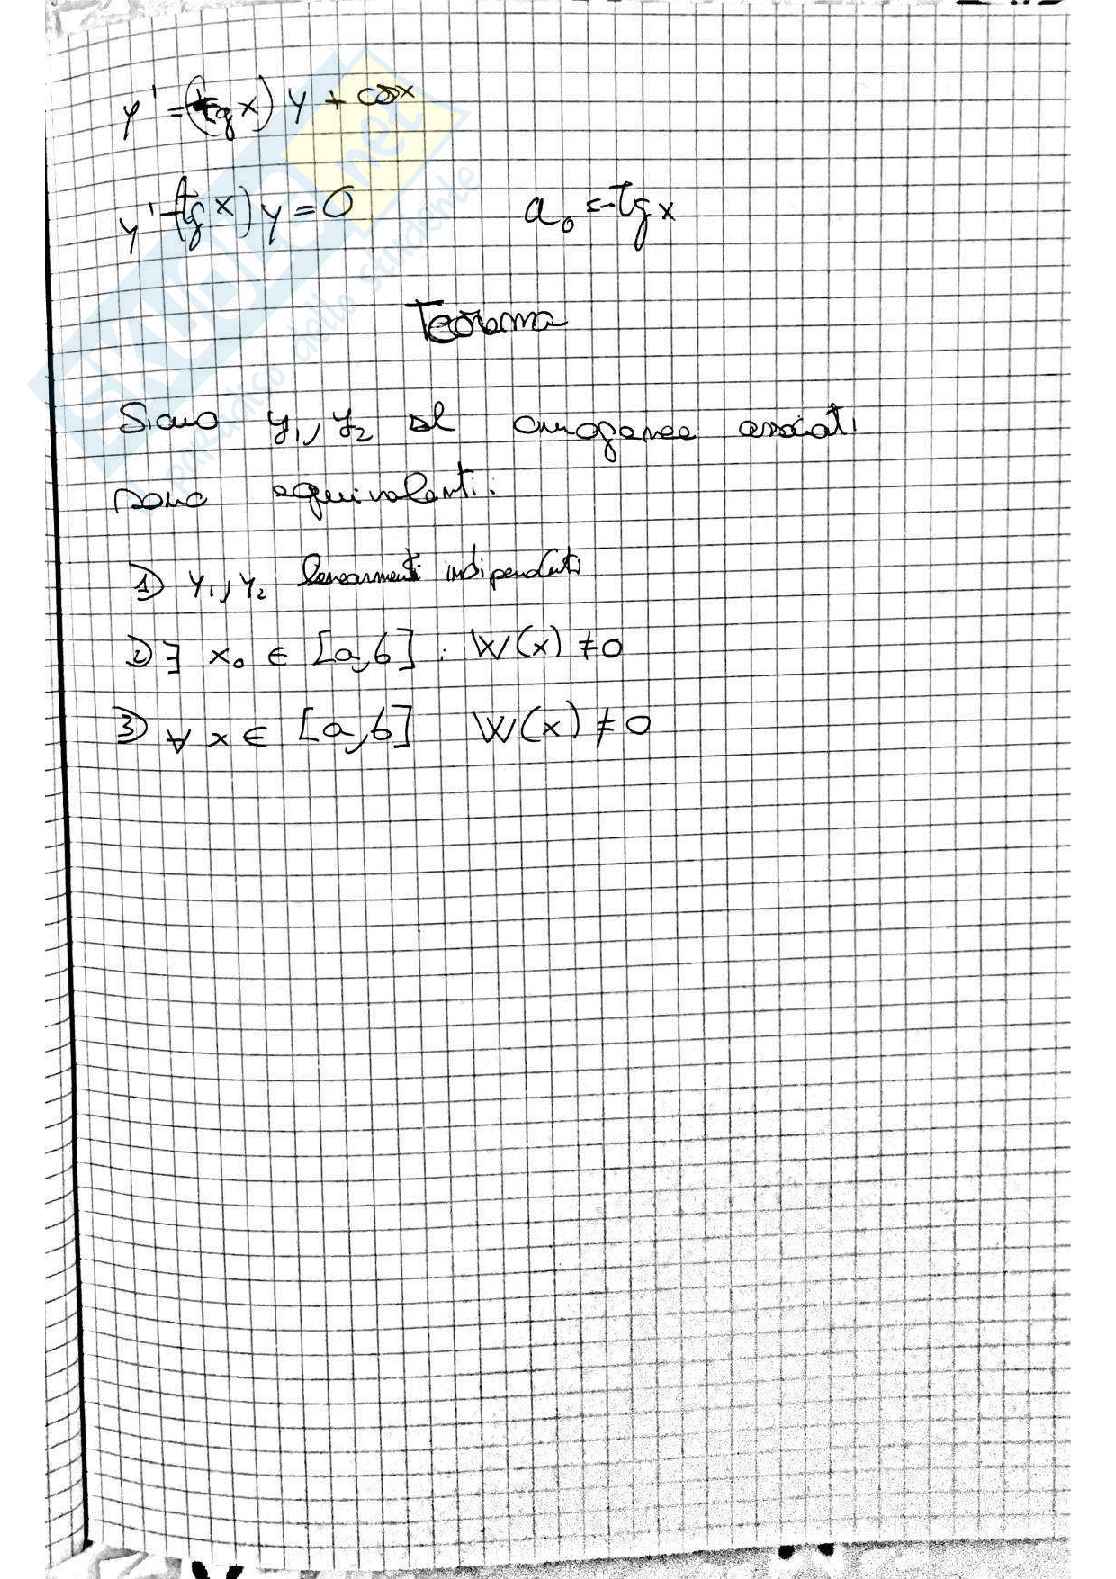 y' = (tg x) y + cos x
y' - (tg x) y = 0 a₀ = -tg x
Teorema
Siano y₁, y₂ sol omogenee associati
sono equivalenti:
1) y₁, y₂ linearmenti indipendenti
2) ∃ x₀ ∈ [a,b] : W(x) ≠ 0
3) ∀ x ∈ [a,b] W(x) ≠ 0